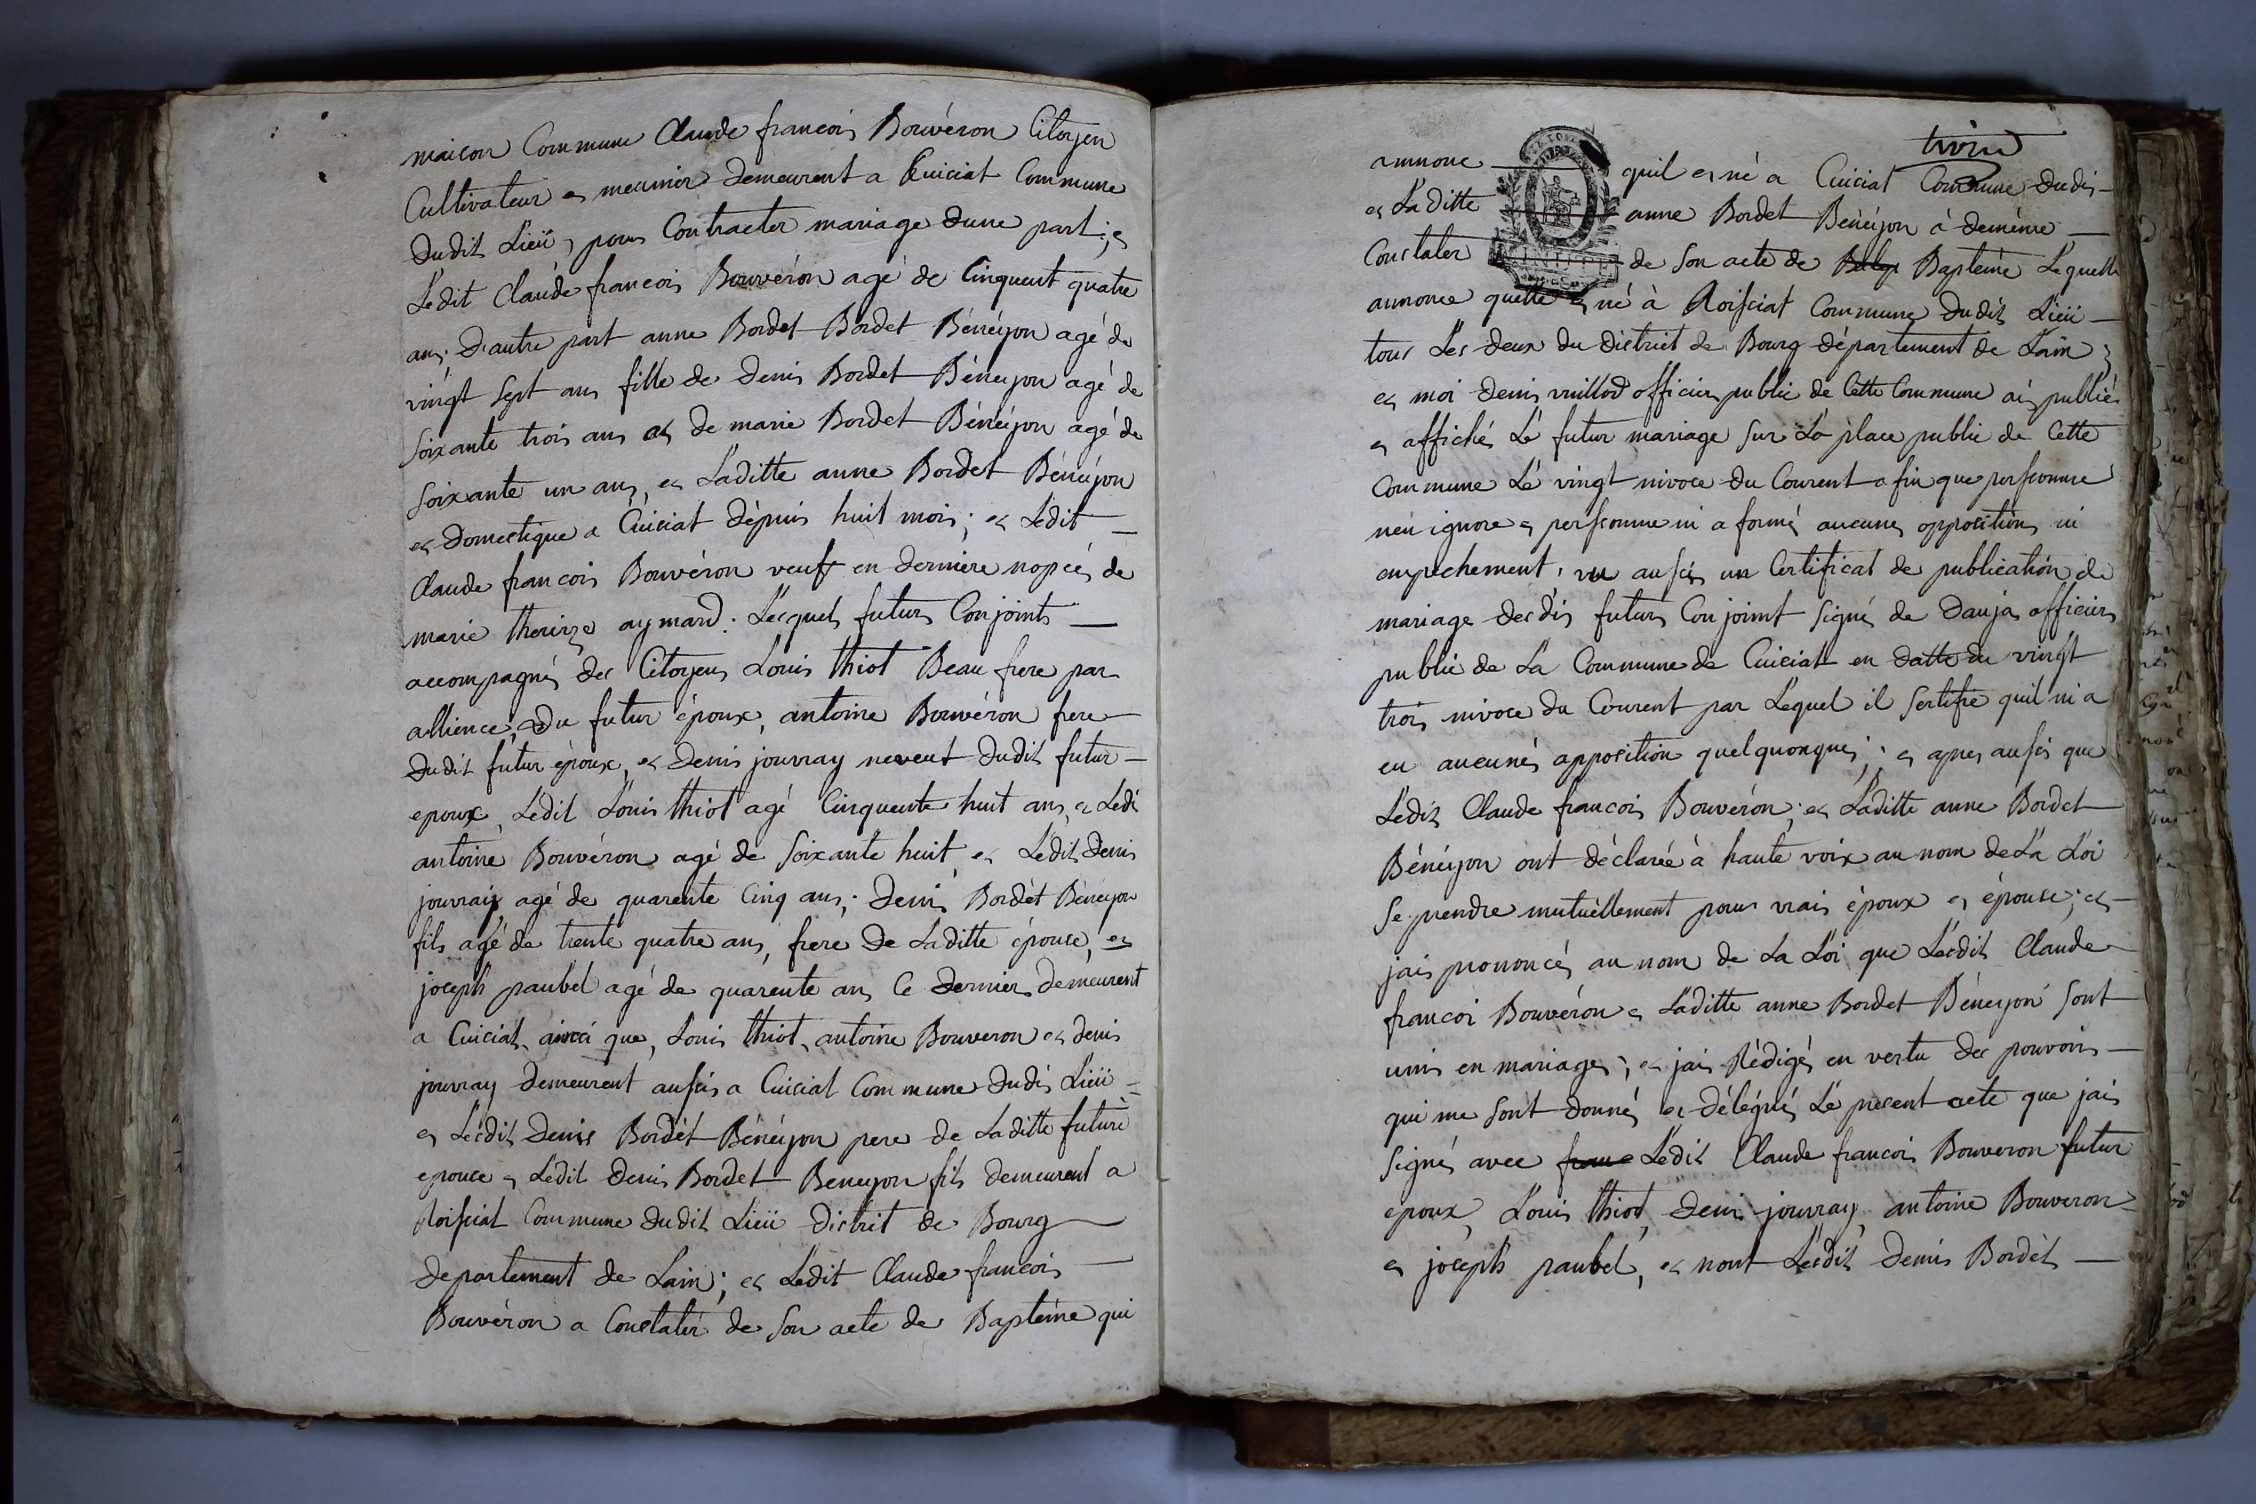 maison Commune Claude francois Bouvéron Citoyen
Cultivateur et meunier demeurent a Cuiciat Commune
dudit Lieü, pour Contracter mariage dune part; et
Ledit Claude francois Bouvéron agé de Cinquent quatre
ans; d'autre part anne Bordet Bordet Bénéyon agé de
vingt sept ans fille de denis Bordet Bénéyon agé de
soixante trois ans et de marie Bordet Bénéyon agé de
soixante un ans, et Laditte anne Bordet Bénéyon
et domestique a Cuiciat dépuis huit mois; et Ledit
Claude francois Bouvéron veuf en derniere nopcés de
marie therirze aymard: Lesquels futurs Conjoints
accompagnés des Citoyens Louis thiot Beau frere par
allience, du futur époux, antoine Bouvéron frere
dudit futur époux, et denis jouvray neveut dudit futur
epoux, Ledit Louis thiot agé Cinquente huit ans, et Ledi
antoine Bouvéron agé de soixante huit et Ledit denis
jouvray agé de quarente Cinq ans; denis Bordét Bénéyon
fils agé de trente quatre ans, frere de Laditte épouce, et
joceph paubel agé de quarente ans Ce dernier demeurent
a Cuiciat, aincci que, Louis thiot, antoine Bouveron et denis
jouvray demeurent aussis a Cuiciat Commune dudis Lieü
et Lesdit denis Bordét Bénéyon pere de Laditte future
epouce et Ledit denis Bordet Beneyon fils demeurent a
Roissiat Commune dudit Lieü district de Bourg
departement de Lain; et Ledit Claude francois
Bouvéron a Constatér de son acte de Baptéme qui
troise
annonc quil et né a Cuiciat Commune dudis
et La ditte anne Bordet Bénéyon à deméme
Constater de son acte de Baptéme Lequelle
annonce quelle et né à Roissiat Commune dudit Lieü
tous Les deux du district de Bourg département de Lain;
et moi denis vuillod officier public de Cette Commune ais publiés
et affichés Lé futur mariage sur La place public de Cette
Commune Lé vingt nivoce du Courent afin que persconne
neu ignore et persconne ni a formés aucunes oppocitions ni
empechement, vu aussis un Certificat de publication de
mariage desdis futurs Conjoint signé de dauja officier
public de La Commune de Cuiciat en datte du vingt
trois nivoce du Courent par Lequel il sertifie quil ni a
eu aucunés apposition quelquonques; et apres aussis que
Ledit Claude francois Bouvéron; et Laditte anne Bordet
Bénéyon ont déclarée à haute voix au nom de La Loi
se prendre mutuéllement pour vrais époux et épouse; et
jais prononcés au nom de La Loi que Lesdit Claude
francoi Bouvéron et Laditte anne Bordet Béneyon sont
unis en mariages; et jais Rédigés en vertu des pouvoirs
qui me sont donnés et délégués Lé precent acte que jais
signés avec Ledit Claude francois Bouveron futur
epoux, Louis thiot, denis jouvray, antoine Bouveron
et joceph paubel, et nont Lesdit denis Bordét